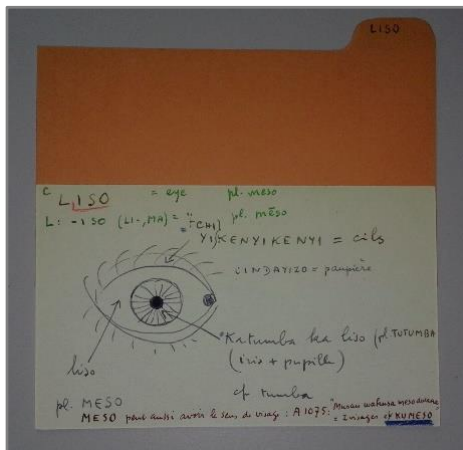 LISO
C LISO = eye pl. meso
L: -ISO (LI-, MA) = pl. mēso
YIKENYIKENYI = cils
CINDAYIZO = paupière
Katumba ka liso (pl. TUTUMBA
(iris + pupille)
liso
cf tumba
pl. MESO
MESO peut aussi avoir le sens de visage : A 1075: "Musau wakusa meso
= 2 visages cf KUMESO